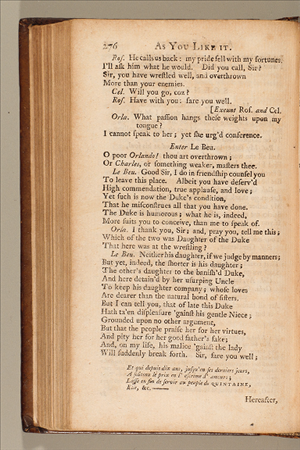 276 AS YOU LIKE IT.
Ros. He calls us back: my pride fell with my fortunes,
I'll ask him what he would. Did you call, Sir?
Sir, you have wrestled well, and overthrown
More than your enemies.
Cel. Will you go, coz?
Ros. Have with you: fare you well.
[Exeunt Ros. and Cel.
Orla. What passion hangs these weights upon my
tongue?
I cannot speak to her; yet she urg'd conference.
Enter Le Beu.
O poor Orlando! thou art overthrown;
Or Charles, or something weaker, masters thee.
Le Beu. Good Sir, I do in friendship counsel you
To leave this place. Albeit you have deserv'd
High commendation, true applause, and love;
Yet such is now the Duke's condition,
That he misconstrues all that you have done.
The Duke is humorous; what he is, indeed,
More suits you to conceive, than me to speak of.
Orla. I thank you, Sir; and, pray you, tell me this;
Which of the two was Daughter of the Duke
That here was at the wrestling?
Le Beu. Neither his daughter, if we judge by manners;
But yet, indeed, the shorter is his daughter;
The other's daughter to the banish'd Duke,
And here detain'd by her usurping Uncle
To keep his daughter company; whose loves
Are dearer than the natural bond of sisters.
But I can tell you, that of late this Duke
Hath ta'en displeasure 'gainst his gentle Niece;
Grounded upon no other argument,
But that the people praise her for her virtues,
And pity her for her good father's sake;
And, on my life, his malice 'gainst the lady
Will suddenly break forth. Sir, fare you well;
Et qui depuis dix ans, jusqu'en ses derniers jours,
A soûtenu le prix en l'escrime d'amours;
Lassé en fin de servir au peuple de QUINTAINE,
Elle, &c.——
Hereafter,